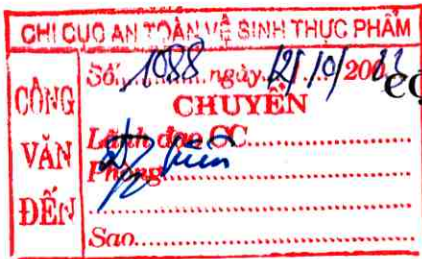 CHI CỤC AN TOÀN VỆ SINH THỰC PHẨM
CÔNG VĂN ĐẾN
Số: 1088 ngày 12/10/20
CHUYỂN
Lãnh đạo CC
Phòng
Sao